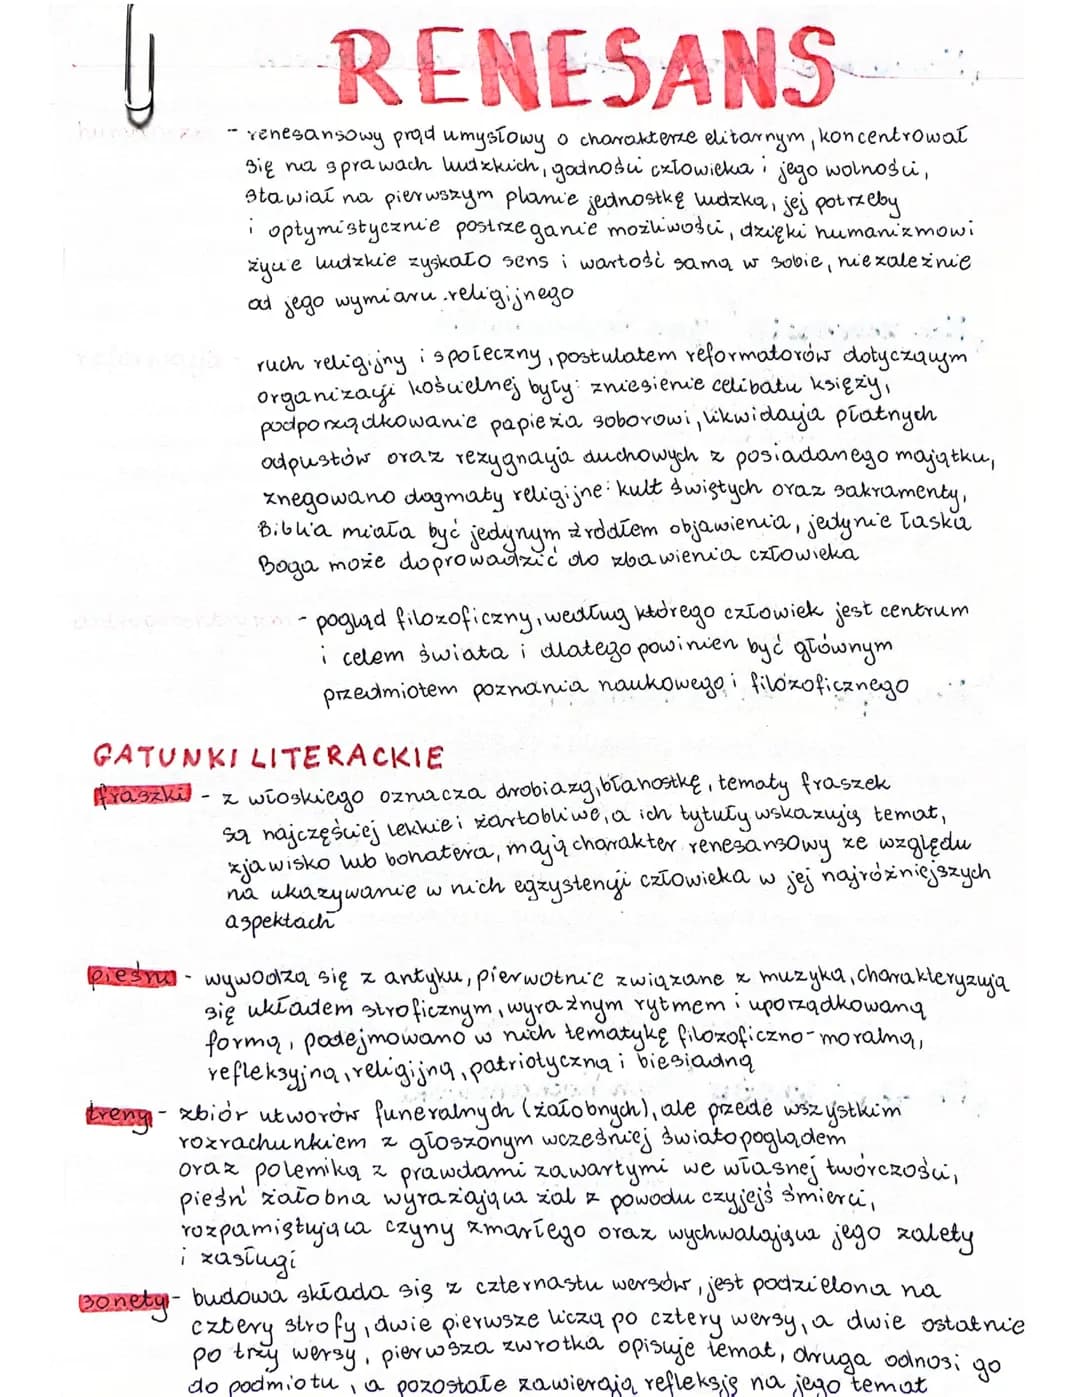 RENESANS
humanizm - renesansowy prąd umysłowy o charakterze elitarnym, koncentrował
się na sprawach ludzkich, godności człowieka i jego wolności,
stawiał na pierwszym planie jednostkę ludzką, jej potrzeby
i optymistycznie postrzeganie możliwości, dzięki humanizmowi
życie ludzkie zyskało sens i wartość samą w sobie, niezależnie
od jego wymiaru religijnego
reformacja - ruch religijny i społeczny, postulatem reformatorów dotyczącym
organizacji kościelnej były: zniesienie celibatu księży,
podporządkowanie papieża soborowi, likwidacja płatnych
odpustów oraz rezygnacja duchowych z posiadanego majątku,
znegowano dogmaty religijne: kult świętych oraz sakramenty,
Biblia miała być jedynym źródłem objawienia, jedynie łaska
Boga może doprowadzić do zbawienia człowieka
- pogląd filozoficzny, według którego człowiek jest centrum
i celem świata i dlatego powinien być głównym
przedmiotem poznania naukowego i filozoficznego
GATUNKI LITERACKIE
fraszki - z włoskiego oznacza drobiazg, błahostkę, tematy fraszek
są najczęściej lekkie i żartobliwe, a ich tytuły wskazują temat,
zjawisko lub bohatera, mają charakter renesansowy ze względu
na ukazywanie w nich egzystencji człowieka w jej najróżniejszych
aspektach
pieśni - wywodzą się z antyku, pierwotnie związane z muzyką, charakteryzują
się układem stroficznym, wyraźnym rytmem i uporządkowaną
formą, podejmowano w nich tematykę filozoficzno-moralną,
refleksyjną, religijną, patriotyczną i biesiadną
treny - zbiór utworów funeralnych (żałobnych), ale przede wszystkim
rozrachunkiem z głoszonym wcześniej światopoglądem
oraz polemiką z prawdami zawartymi we własnej twórczości,
pieśń żałobna wyrażająca żal z powodu czyjejś śmierci,
rozpamiętująca czyny zmarłego oraz wychwalająca jego zalety
i zasługi
sonety - budowa składa się z czternastu wersów, jest podzielona na
cztery strofy, dwie pierwsze liczą po cztery wersy, a dwie ostatnie
po trzy wersy, pierwsza zwrotka opisuje temat, druga odnosi go
do podmiotu, a pozostałe zawierają refleksję na jego temat